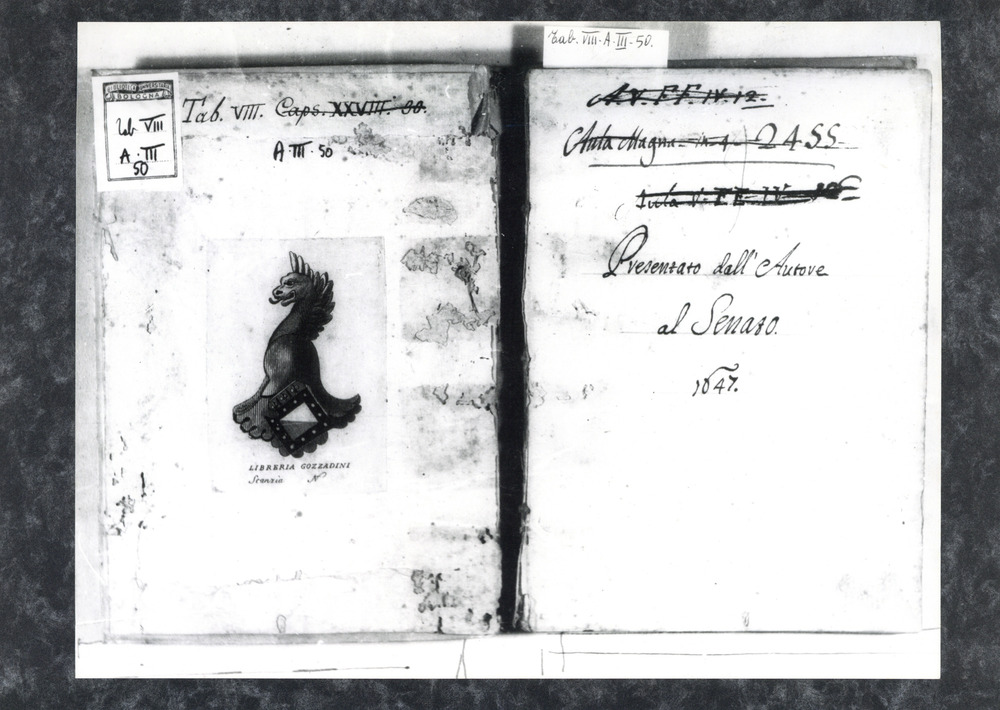 Tab. VIII. A. III. 50.
BIBLIOTECA UNIVERSITARIA
BOLOGNA
Tab VIII
A. III
50
Tab. VIII. Caps. XXVIII.
A III. 50
LIBRERIA GOZZADINI
Scanzia N.
A.V. FF. IV. 12.
Aula Magna 2455
Aula V. FF. IV
Presentato dall'Autore
al Senato.
1647.